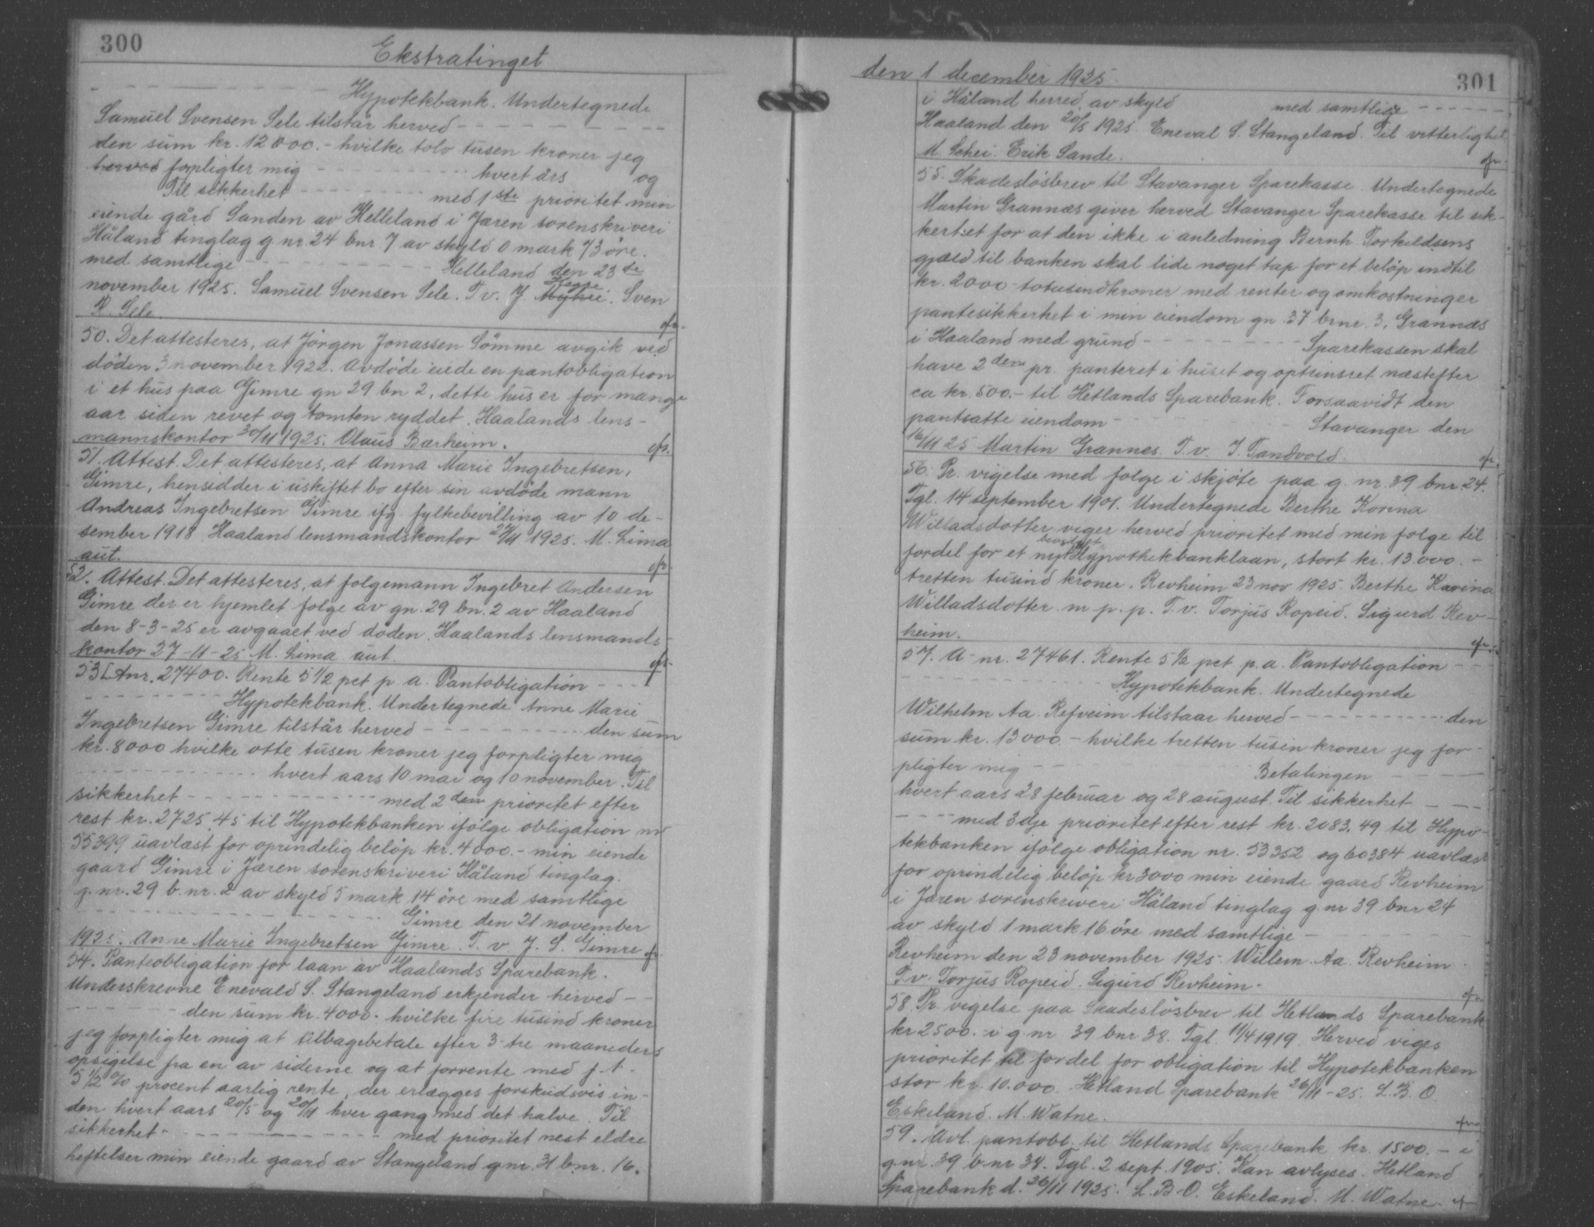 300
Ekstratinget
- - - - Hypotekbank. Undertegnede
Samuel Svensen Sele tilstår herved - - - -
den sum kr. 12000.- hvilke tolv tusen kroner jeg
herved forpligter mig - - - - hvert års og
Til sikkerhet - - - - med 1ste prioritet min
eiende gård Sanden av Helleland i Jæren sorenskriveri
Håland tinglag g nr 24 bnr 7 av skyld 0 mark 73 øre.
med samtlige - - - - Helleland den 23de
november 1925. Samuel Svensen Sele. T. v. J. Sven
R Sele.
50. Det attesteres, at Jörgen Jonassen Sömme avgik ved
döden 3 november 1922. Avdöde eiede en pantobligation
i et hus paa Gimre gn 29 bn 2, dette hus er for mange
aar siden revet og tomten ryddet. Haalands lens-
mannskontor 30/11 1925. Olaus Bærheim.
51. Attest. Det attesteres, at Anna Marie Ingebretsen,
Gimre, hensidder i uskiftet bo efter sin avdöde mann
Andreas Ingebretsen Gimre ifg. fylkebevilling av 10 de-
sember 1918 Haaland lensmandskontor 27/11 1925. M. Lima
aut.
52. Attest. Det attesteres, at folgemann Ingebret Andersen
Gimre der er hjemlet folge av gn. 29 bn. 2 av Haaland
den 8-3-25 er avgaaet ved döden. Haalands lensmands-
kontor 27-11-25 M. Lima aut.
53 Anr. 27400. Rente 5 1/2 pct p a. Pantobligation - - - -
- - - - Hypotekbank. Undertegnede Anne Marie
Ingebretsen Gimre tilstår herved - - - - den sum
kr. 8000 hvilke otte tusen kroner jeg forpligter mig
- - - - hvert aars 10 mai og 10 november. Til
sikkerhet - - - - med 2den prioritet efter
rest kr. 2725,45 til Hypotekbanken ifölge obligation nr
55399 uavlæst for oprindelig belöp kr. 4000.- min eiende
gaard Gimre i Jæren sorenskriveri Håland tinglag.
g. nr. 29 b. nr. 2 av skyld 5 mark 14 öre med samtlige
- - - - Gimre den 21 november
1925. Anne Marie Ingebretsen Gimre. T. v. J. S. Gimre
54. Panteobligation for laan av Haalands Sparebank.
Underskrevne Enevald S. Stangeland erkjender herved - -
- - - - den sum kr. 4000.- hvilke fire tusind kroner
jeg forpligter mig at tilbagebetale efter 3 tre maaneders
opsigelse fra en av siderne og at forrente med f. t.
5 1/2 % procent aarlig rente, der erlægges forskudsvis in-
den hvert aars 20/5 og 20/11 hver gang med det halve. Til
sikkerhet - - - - med prioritet nest eldre
heftelser min eiende gaard av Stangeland gnr. 31 bnr. 16.
den 1 december 1925.
301
i Håland herred, av skyld med samtlige - - - -
Haaland den 20/5 1925. Eneval S. Stangeland. Til vitterlighet
M. Schei. Erik Sande.
55. Skadeslösbrev til Stavanger Sparekasse. Undertegnede
Martin Grannæs giver herved Stavanger Sparekasse til sik-
kerhet for at den ikke i anledning Bernh. Torkildsens
gjæld til banken skal lide noget tap for et belöp indtil
kr. 2000 - totusindkroner med renter og omkostninger
pantesikkerhet i min eiendom gn. 37 brnr. 3, Grannæs
i Haaland med grund - - - - Sparekassen skal
have 2den pr. panteret i huset og optrinsret næstefter
ca kr. 500.- til Hetlands Sparebank. Forsaavidt den
pantsatte eiendom - - - - Stavanger den
16/11 25 Martin Grannes. T. v. J. Tandvold.
56. Pr. vigelse med folge i skjöte paa g. nr. 39 bnr 24.
Tgl. 14 september 1901. Undertegnede Berthe Korina
Willadsdotter viger herved prioritet med min folge til
fordel for et nyt Hypothekbanklaan, stort kr. 13.000. -
tretten tusind kroner. Revheim 23 nov 1925. Berthe Karina
Willadsdotter. m. p. p. T. v. Torjus Ropeid. Sigurd Rev-
heim.
57. A - nr. 27461. Rente 5 1/2 pct p. a. Pantobligation - - -
- - - - Hypotekbank. Undertegnede
Wilhelm Aa. Refveim tilstaar herved - - - - den
sum kr. 13000 - hvilke tretten tusin kroner jeg for-
pligter mig - - - - Betalingen - - - -
hvert aars 28 februar og 28 august. Til sikkerhet - - -
- - - med 3dje prioritet efter rest kr. 2083.49 til Hypo-
tekbanken ifölge obligation nr. 53352 og 60384 uavlæst
for oprindelig belöp kr 3000 min eiende gaard Revheim
i Jæren sorenskriveri Håland tinglag g nr 39 bnr 24
av skyld 1 mark 16 öre med samtlige - - - -
Revheim den 23 november 1925. Willem Aa. Revheim.
T. v. Torjus Ropeid. Sigurd Revheim.
58. Pr. vigelse paa Skadeslösbrev til Hetlands Sparebank
kr. 2500. i g nr. 39 bnr 38. Tgl. 11/4 1919. Herved viges
prioritet til fordel for obligation til Hypotekbanken
stor kr. 10.000. Hetland Sparebank 26/11-25. L. B. O.
Eskeland. M. Watne.
59. Avl. pantobl. til Hetlands Sparebank kr. 1500.- i
g. nr. 39 b. nr 34. Tgl. 2 sept. 1905. Kan avlyses. Hetland
Sparebank d. 26/11 1925. L. B. O. Eskeland. M. Watne.